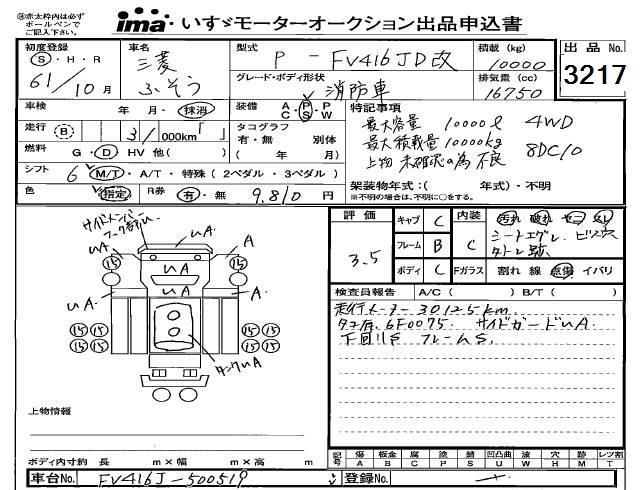 ※赤太枠内は必ず
ボールペンで
ご記入下さい。
ima いすゞモーターオークション出品申込書
初度登録 車名 型式 P - FV416JD改 積載 (kg) 10000
S・H・R 三菱
61/10月 ふそう
グレード・ボディ形状 消防車 排気量 (cc) 16750
出品 No. 3217
車検 年 月・抹消 装備 A P P
C S W
特記事項
走行 (B) 31,000km タコグラフ 有・無 別体 ( 年 月)
最大容量 10000ℓ 4WD
最大積載量 10000kg 8DC10
上物 未確認の為 不良
燃料 G・D・HV 他( )
シフト 6 M/T・A/T・特殊 (2ペダル・3ペダル)
架装物年式:( 年式)・不明
※不明の場合は、不明に○をする。
色 指定 R券 有・無 9,810 円
評価 3.5
キャブ C 内装 C 汚れ 破れ
シートエグレ、ビス穴
フレーム B
ボディ C Fガラス 割れ 線 点傷 イバリ
検査員報告 A/C ( ) B/T ( )
走行メーター 30125km
タコ有. 6F0075. サイドガードUA.
下回りS フレームS.
サイドメンバー
UA A
15 15
UA
UA A
15 15 15 15
15 15 15 15
タンクUA
上物情報
ボディ内寸約 長 m×幅 m×高 m
記号 傷 板金 腐 塗 錆 凹凸曲 波 穴 目 レツ割
A B C P S U W H M T
車台No. FV416J-500519
登録No. ―